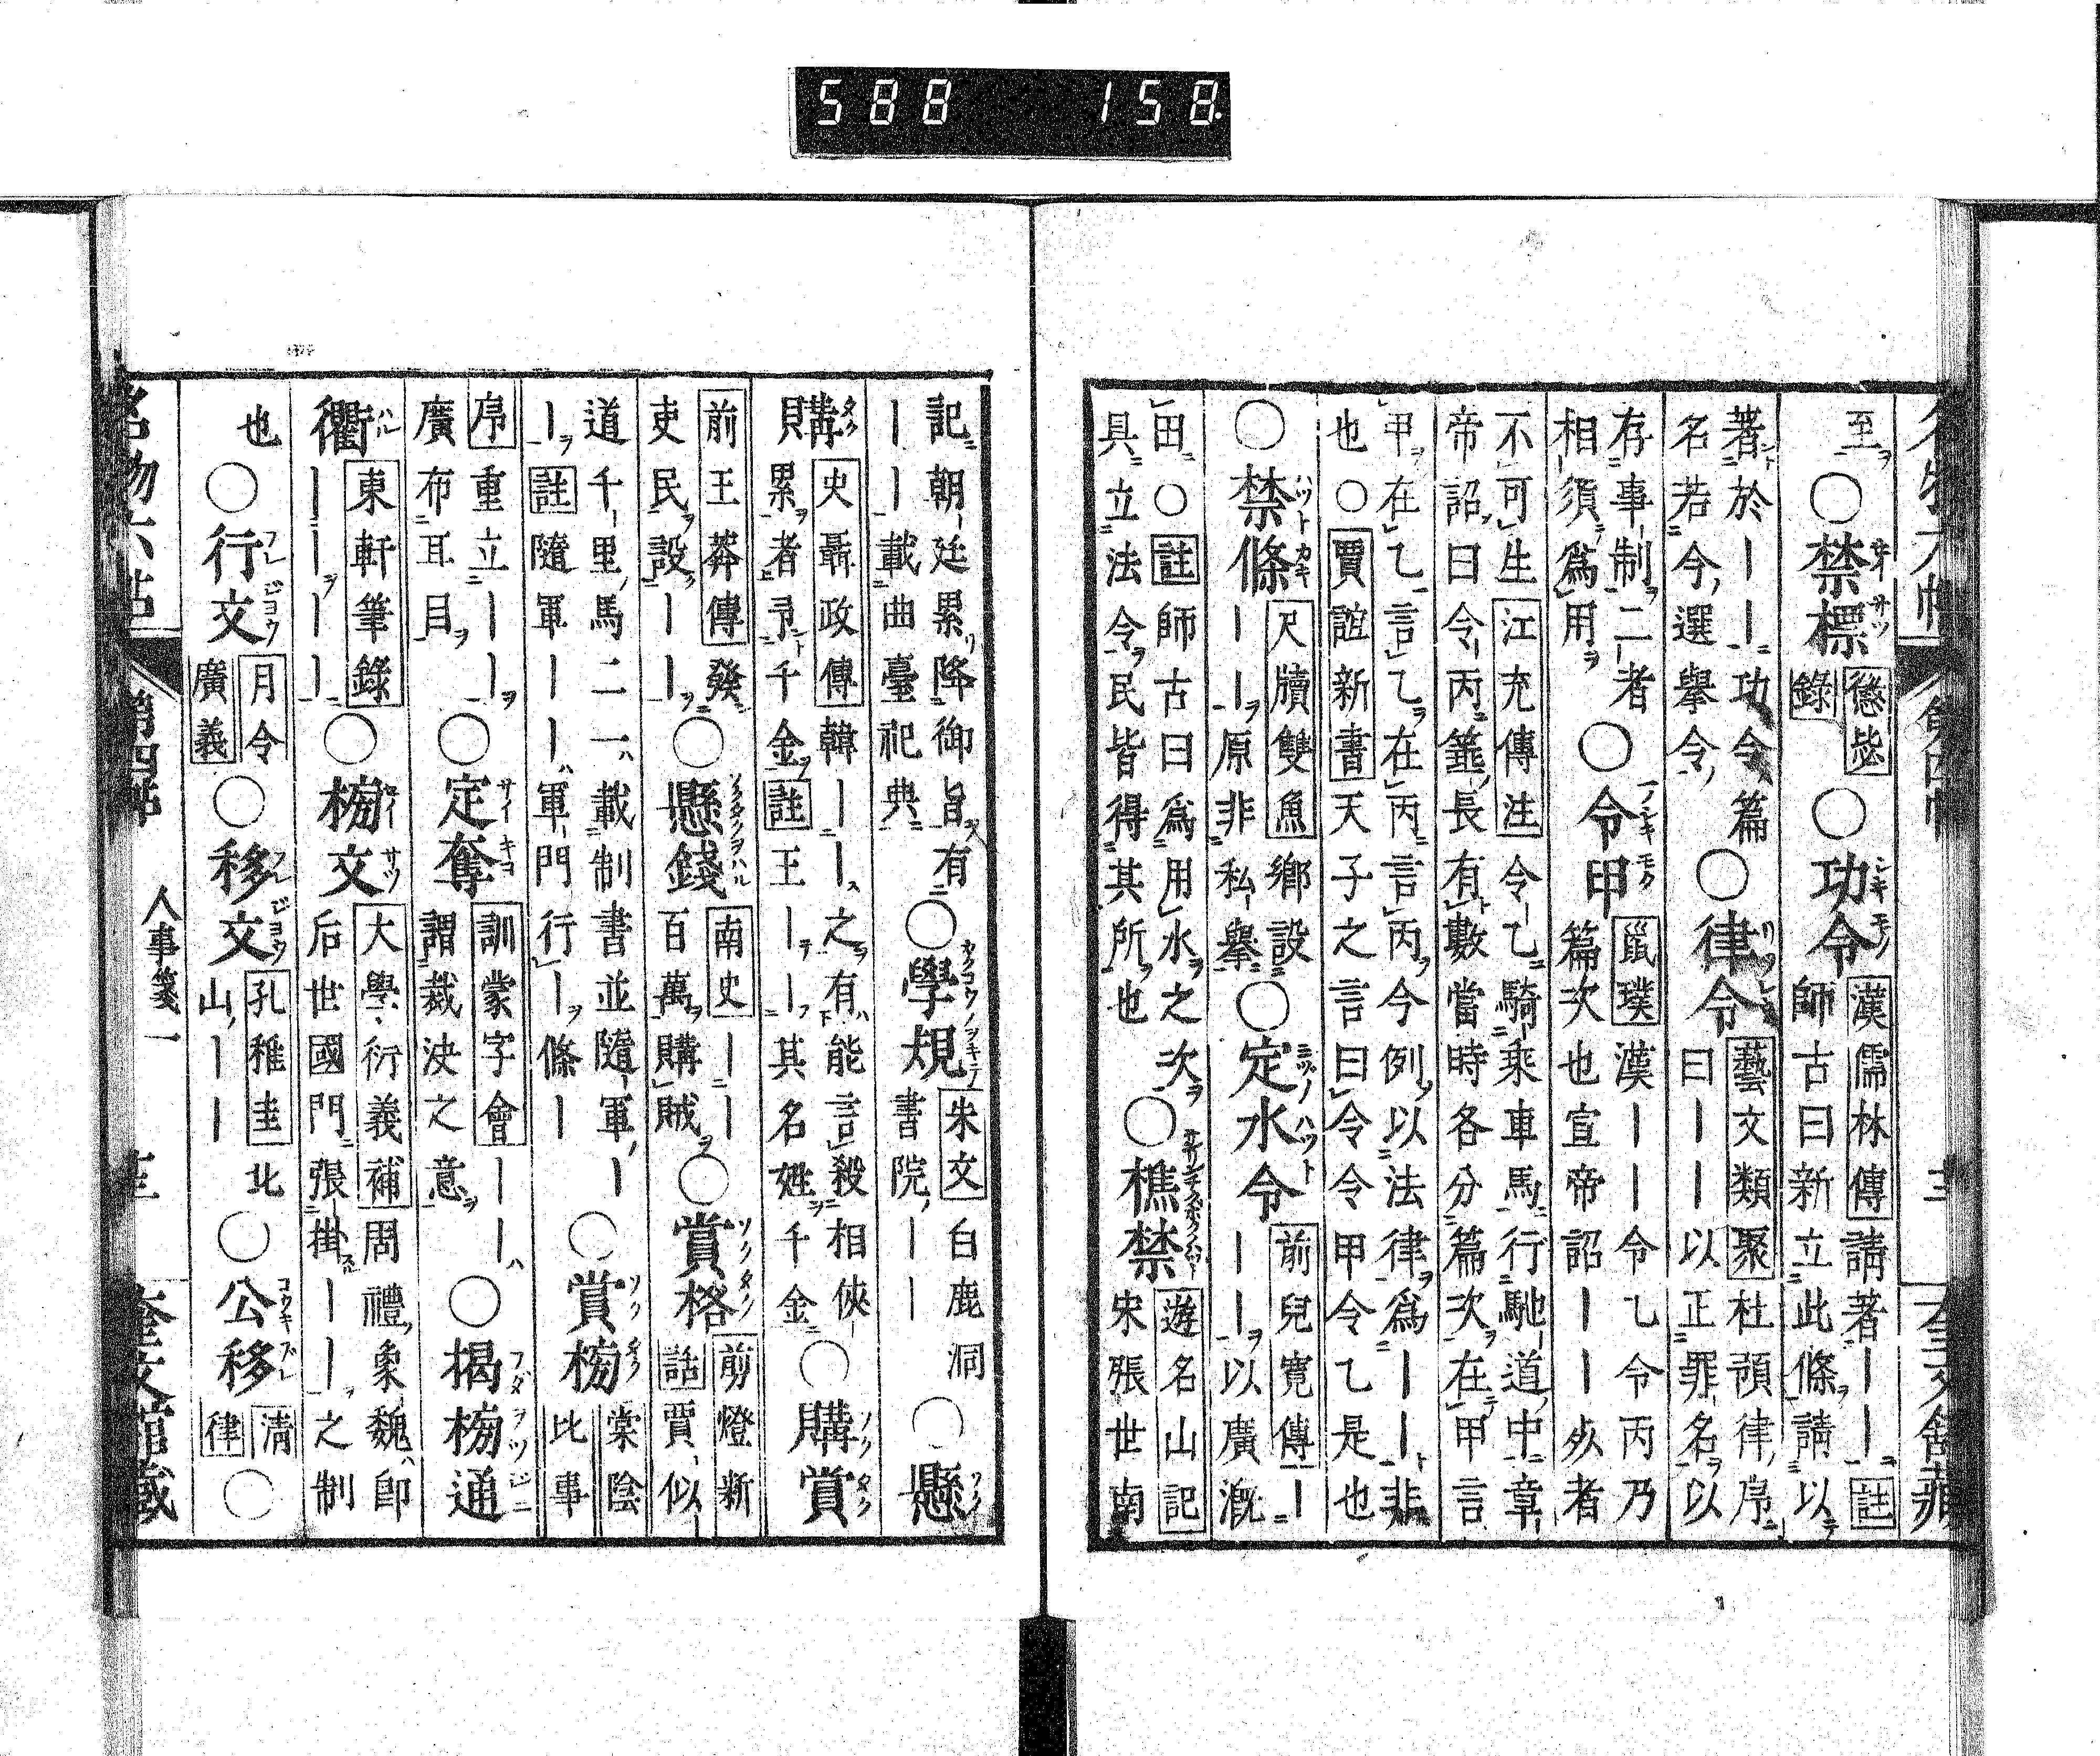 588 158
至○禁標懲毖錄○功令漢儒林傳請著｜｜註師古曰新立此條請以
著於｜｜功令篇○律令藝文類聚杜預律序曰｜｜以正罪名以
名若今選擧令
存事制二者相須爲用○令甲鼠璞漢｜｜令乙令丙乃篇次也宣帝詔｜｜㱑者
不可生江充傳注令乙騎乘車馬行馳道中章
帝詔曰令丙箠長有數當時各分篇次在甲言
甲在乙言乙在丙言丙今例以法律爲｜｜非
也○賈誼新書天子之言曰令令甲令乙是也
○禁條尺牘雙魚鄉設｜｜原非私擧○定水令前兒寬傳｜｜｜以廣漑
田○註師古曰爲用水之次具立法令民皆得其所也○樵禁遊名山記宋張世南
記朝廷累降御旨有｜｜載曲臺祀典○學規朱文書院｜｜白鹿洞○懸
購史聶政傳韓｜｜之有能言殺相俠
累者予千金註王｜｜其名姓千金○購賞
前王莽傳發吏民設｜｜○懸錢南史｜｜百萬購賊○賞格剪燈新話賈似
道千里馬二一載制書並隨軍｜
｜註隨軍｜｜軍門行｜條｜○賞榜棠陰比事
序重立｜｜廣布耳目○定奪訓蒙字會｜｜謂裁決之意○揭榜通
衢東軒筆錄｜｜｜｜○榜文大學衍義補周禮象魏即后世國門張掛｜｜之制
也○行文月令廣義○移文孔稚圭北山｜｜○公移清律○
名物六帖 第四帖 人事箋一 奎文館藏